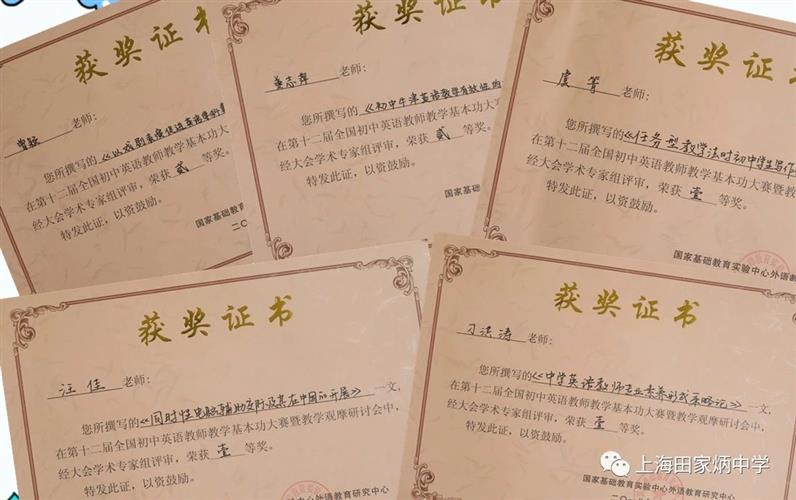 获奖证书
老师:
您所撰写的《以戏剧表演促进英语学科
在第十二届全国初中英语教师教学基本功大
经大会学术专家组评审，荣获 贰 等奖。
特发此证，以资鼓励。
国家基础教育
二〇
获奖证书
姜志萍 老师:
您所撰写的《初中牛津英语教学有效
在第十二届全国初中英语教师教学基本功大
经大会学术专家组评审，荣获 贰 等奖。
特发此证，以资鼓励。
国家基础教育
获奖证书
虞菁 老师:
您所撰写的《任务型教学法对初中学生写作
在第十二届全国初中英语教师教学基本功大赛暨教
经大会学术专家组评审，荣获 壹 等奖。
特发此证，以资鼓励。
国家基础教育实验中心外语教
获奖证书
汪佳 老师:
您所撰写的《同时性电脑辅助交际及其在中国的开展》一文，
在第十二届全国初中英语教师教学基本功大赛暨教学观摩研讨会中，
经大会学术专家组评审，荣获 壹 等奖。
特发此证，以资鼓励。
国家基础教育实验中心外语教育研究中心
获奖证书
刁洪涛 老师:
您所撰写的《中学英语教师专业素养形成策略论》一文，
在第十二届全国初中英语教师教学基本功大赛暨教学观摩研讨会中，
经大会学术专家组评审，荣获 壹 等奖。
特发此证，以资鼓励。
上海田家炳中学